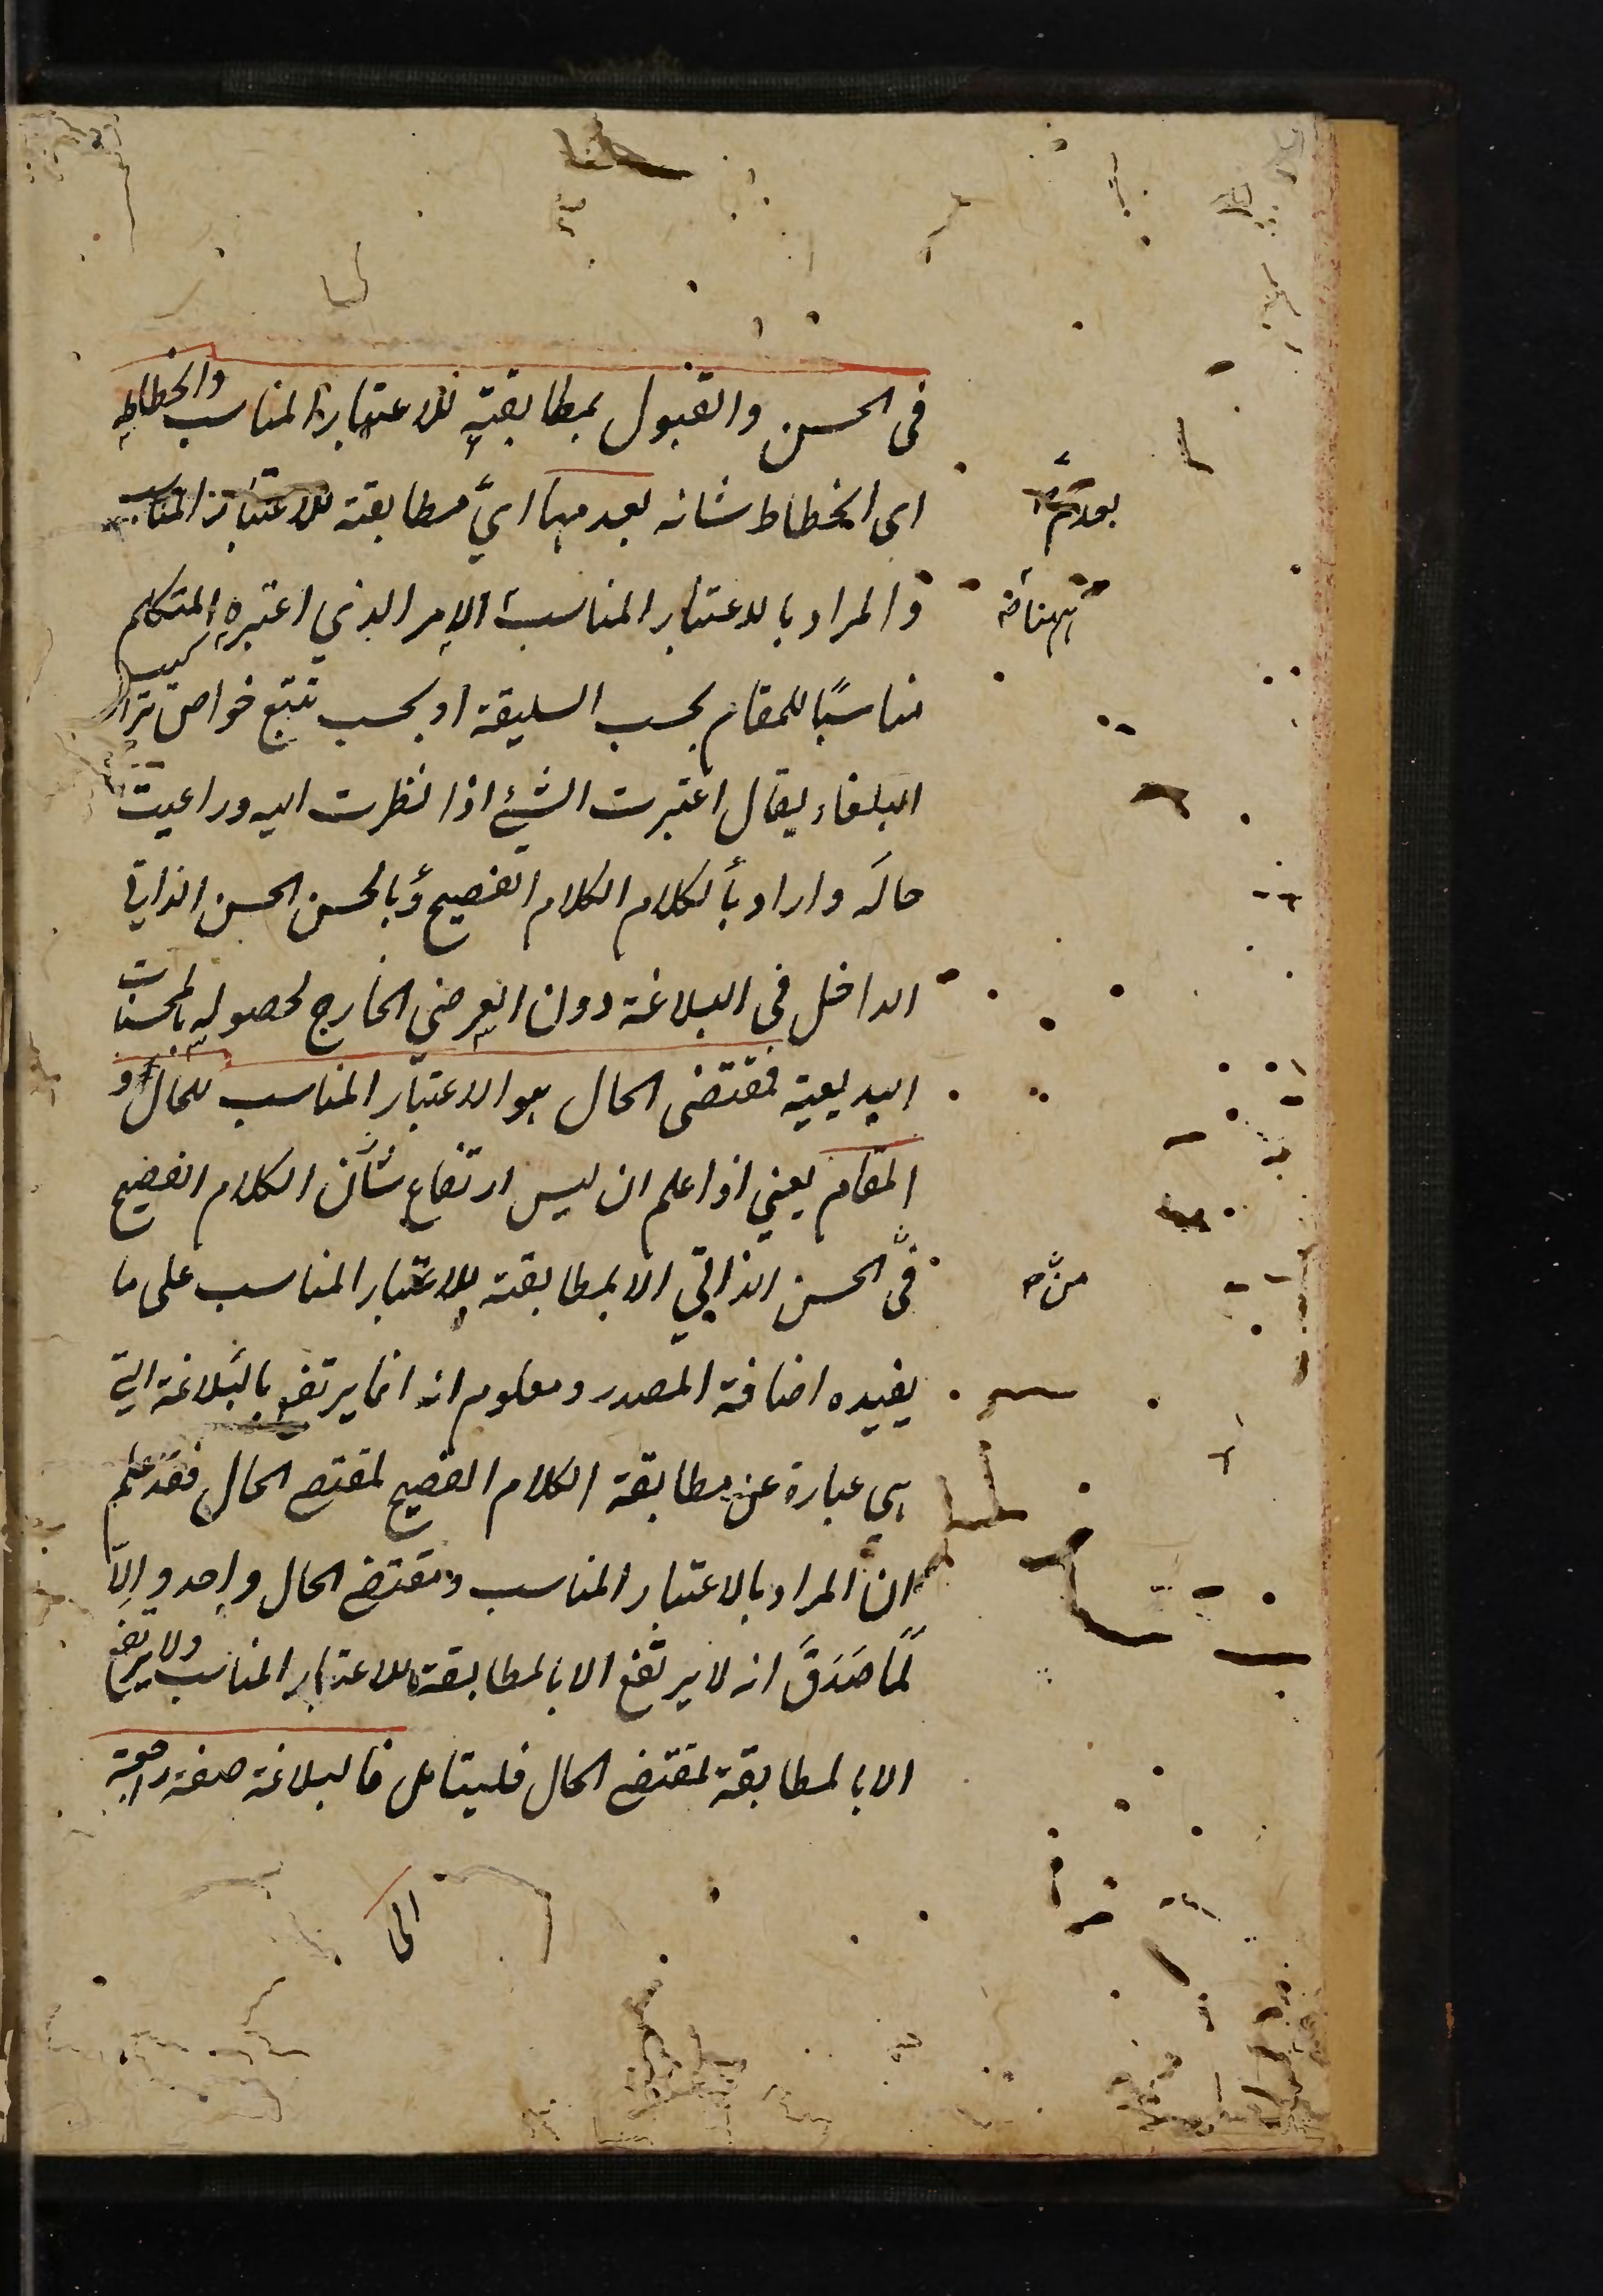 فى الحسن والقبول بمطابقته للاعتبار المناسب وانحطاطه
اى انحطاط شانه بعدمها اى مطابقته للاعتبار المناسب
والمراد بالاعتبار المناسب الامر الذي اعتبره المتكلم
مناسبًا للمقام بحسب السليقة او بحسب تتبع خواص تراكيب
البلغاء يقال اعتبرت الشئ اذا نظرت اليه وراعيت
حاله واراد بالكلام الكلام الفصيح وبالحسن الحسن الذاتي
الداخل فى البلاغة دون العرضي الخارج لحصوله بالمحسنات
البديعية فمقتضى الحال هو الاعتبار المناسب للحال و
المقام يعني اذا علم ان ليس ارتفاع شان الكلام الفصيح
فى الحسن الذاتي الا بمطابقته للاعتبار المناسب على ما
يفيده اضافة المصدر ومعلوم انه انما يرتفع بالبلاغة التي
هي عبارة عن مطابقة الكلام الفصيح لمقتضى الحال فقد علم
ان المراد بالاعتبار المناسب ومقتضى الحال واحد والّا
لَمَا صَدَقَ انه لا يرتفع الا بالمطابقة للاعتبار المناسب ولا يرتفع
الا بالمطابقة لمقتضى الحال فليتامل فالبلاغة صفة راجعة
الى